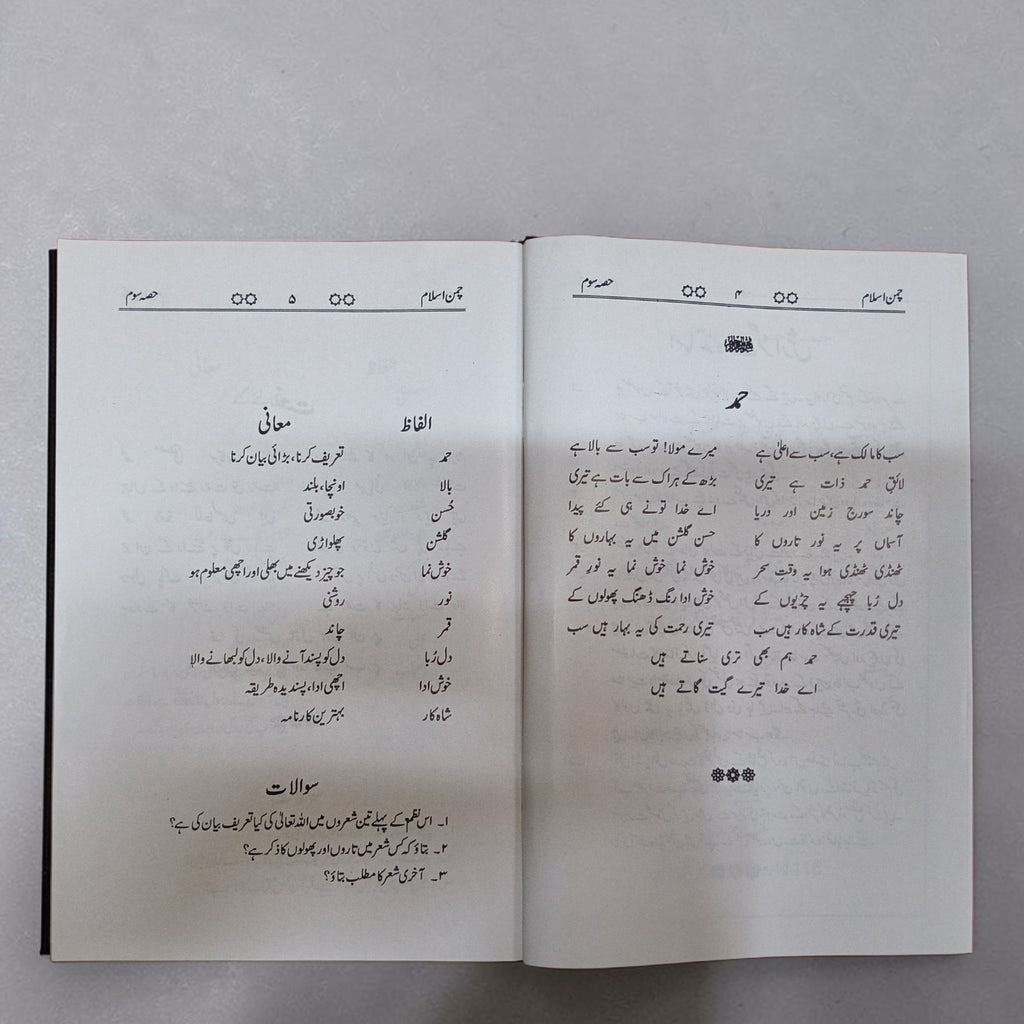 چمن اسلام ۴ حصہ سوم
حمد
سب کا مالک ہے، سب سے اعلیٰ ہے میرے مولا! تو سب سے بالا ہے
لائقِ حمد ذات ہے تیری بڑھ کے ہر اک سے بات ہے تیری
چاند سورج زمین اور دریا اے خدا تونے ہی کئے پیدا
آسماں پر یہ نور تاروں کا حسن گلشن میں یہ بہاروں کا
ٹھنڈی ٹھنڈی ہوا یہ وقتِ سحر خوش نما خوش نما یہ نورِ قمر
دل رُبا چہچہے یہ چڑیوں کے خوش ادا رنگ ڈھنگ پھولوں کے
تیری قدرت کے شاہ کار ہیں سب تیری رحمت کی یہ بہار ہیں سب
حمد ہم بھی تری سناتے ہیں
اے خدا تیرے گیت گاتے ہیں
چمن اسلام ۵ حصہ سوم
الفاظ معانی
حمد تعریف کرنا، بڑائی بیان کرنا
بالا اونچا، بلند
حُسن خوبصورتی
گلشن پھلواڑی
خوش نما جو چیز دیکھنے میں بھلی اور اچھی معلوم ہو
نور روشنی
قمر چاند
دل رُبا دل کو پسند آنے والا، دل کو لبھانے والا
خوش ادا اچھی ادا، پسندیدہ طریقہ
شاہ کار بہترین کارنامہ
سوالات
۱۔ اس نظم کے پہلے تین شعروں میں اللہ تعالیٰ کی کیا تعریف بیان کی ہے؟
۲۔ بتاؤ کہ کس شعر میں تاروں اور پھولوں کا ذکر ہے؟
۳۔ آخری شعر کا مطلب بتاؤ؟